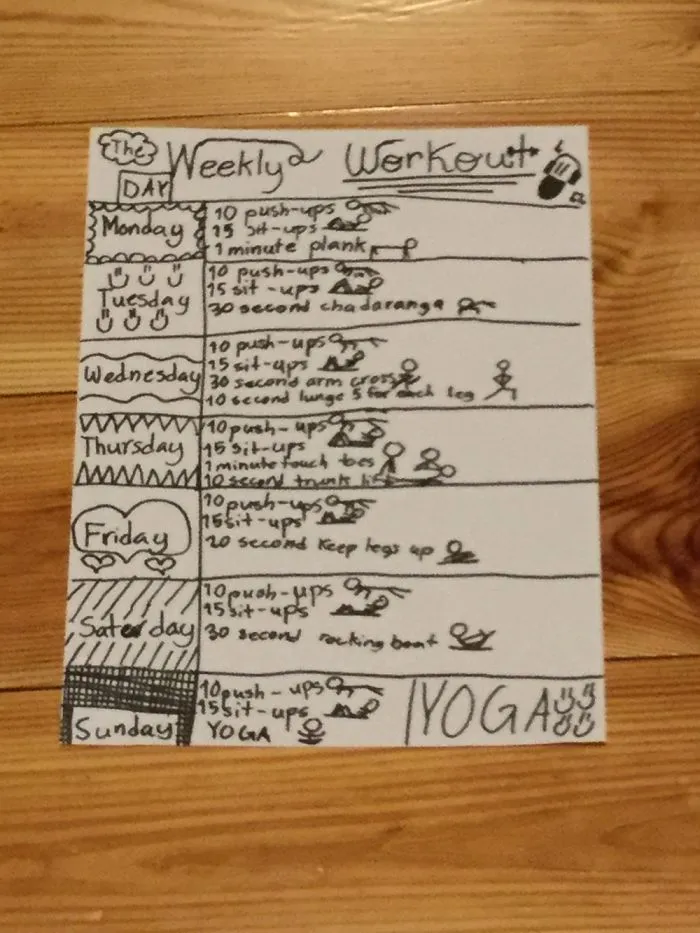 The Weekly Workout
DAY
Monday
10 push-ups
15 sit-ups
1 minute plank
Tuesday
10 push-ups
15 sit-ups
30 second chadaranga
Wednesday
10 push-ups
15 sit-ups
30 second arm cross
10 second lunge 5 for each leg
Thursday
10 push-ups
15 sit-ups
1 minute touch toes
10 second trunk
Friday
10 push-ups
15 sit-ups
20 second Keep legs up
Saterday
10 push-ups
15 sit-ups
30 second rocking boat
Sunday
10 push-ups
15 sit-ups
YOGA
YOGA